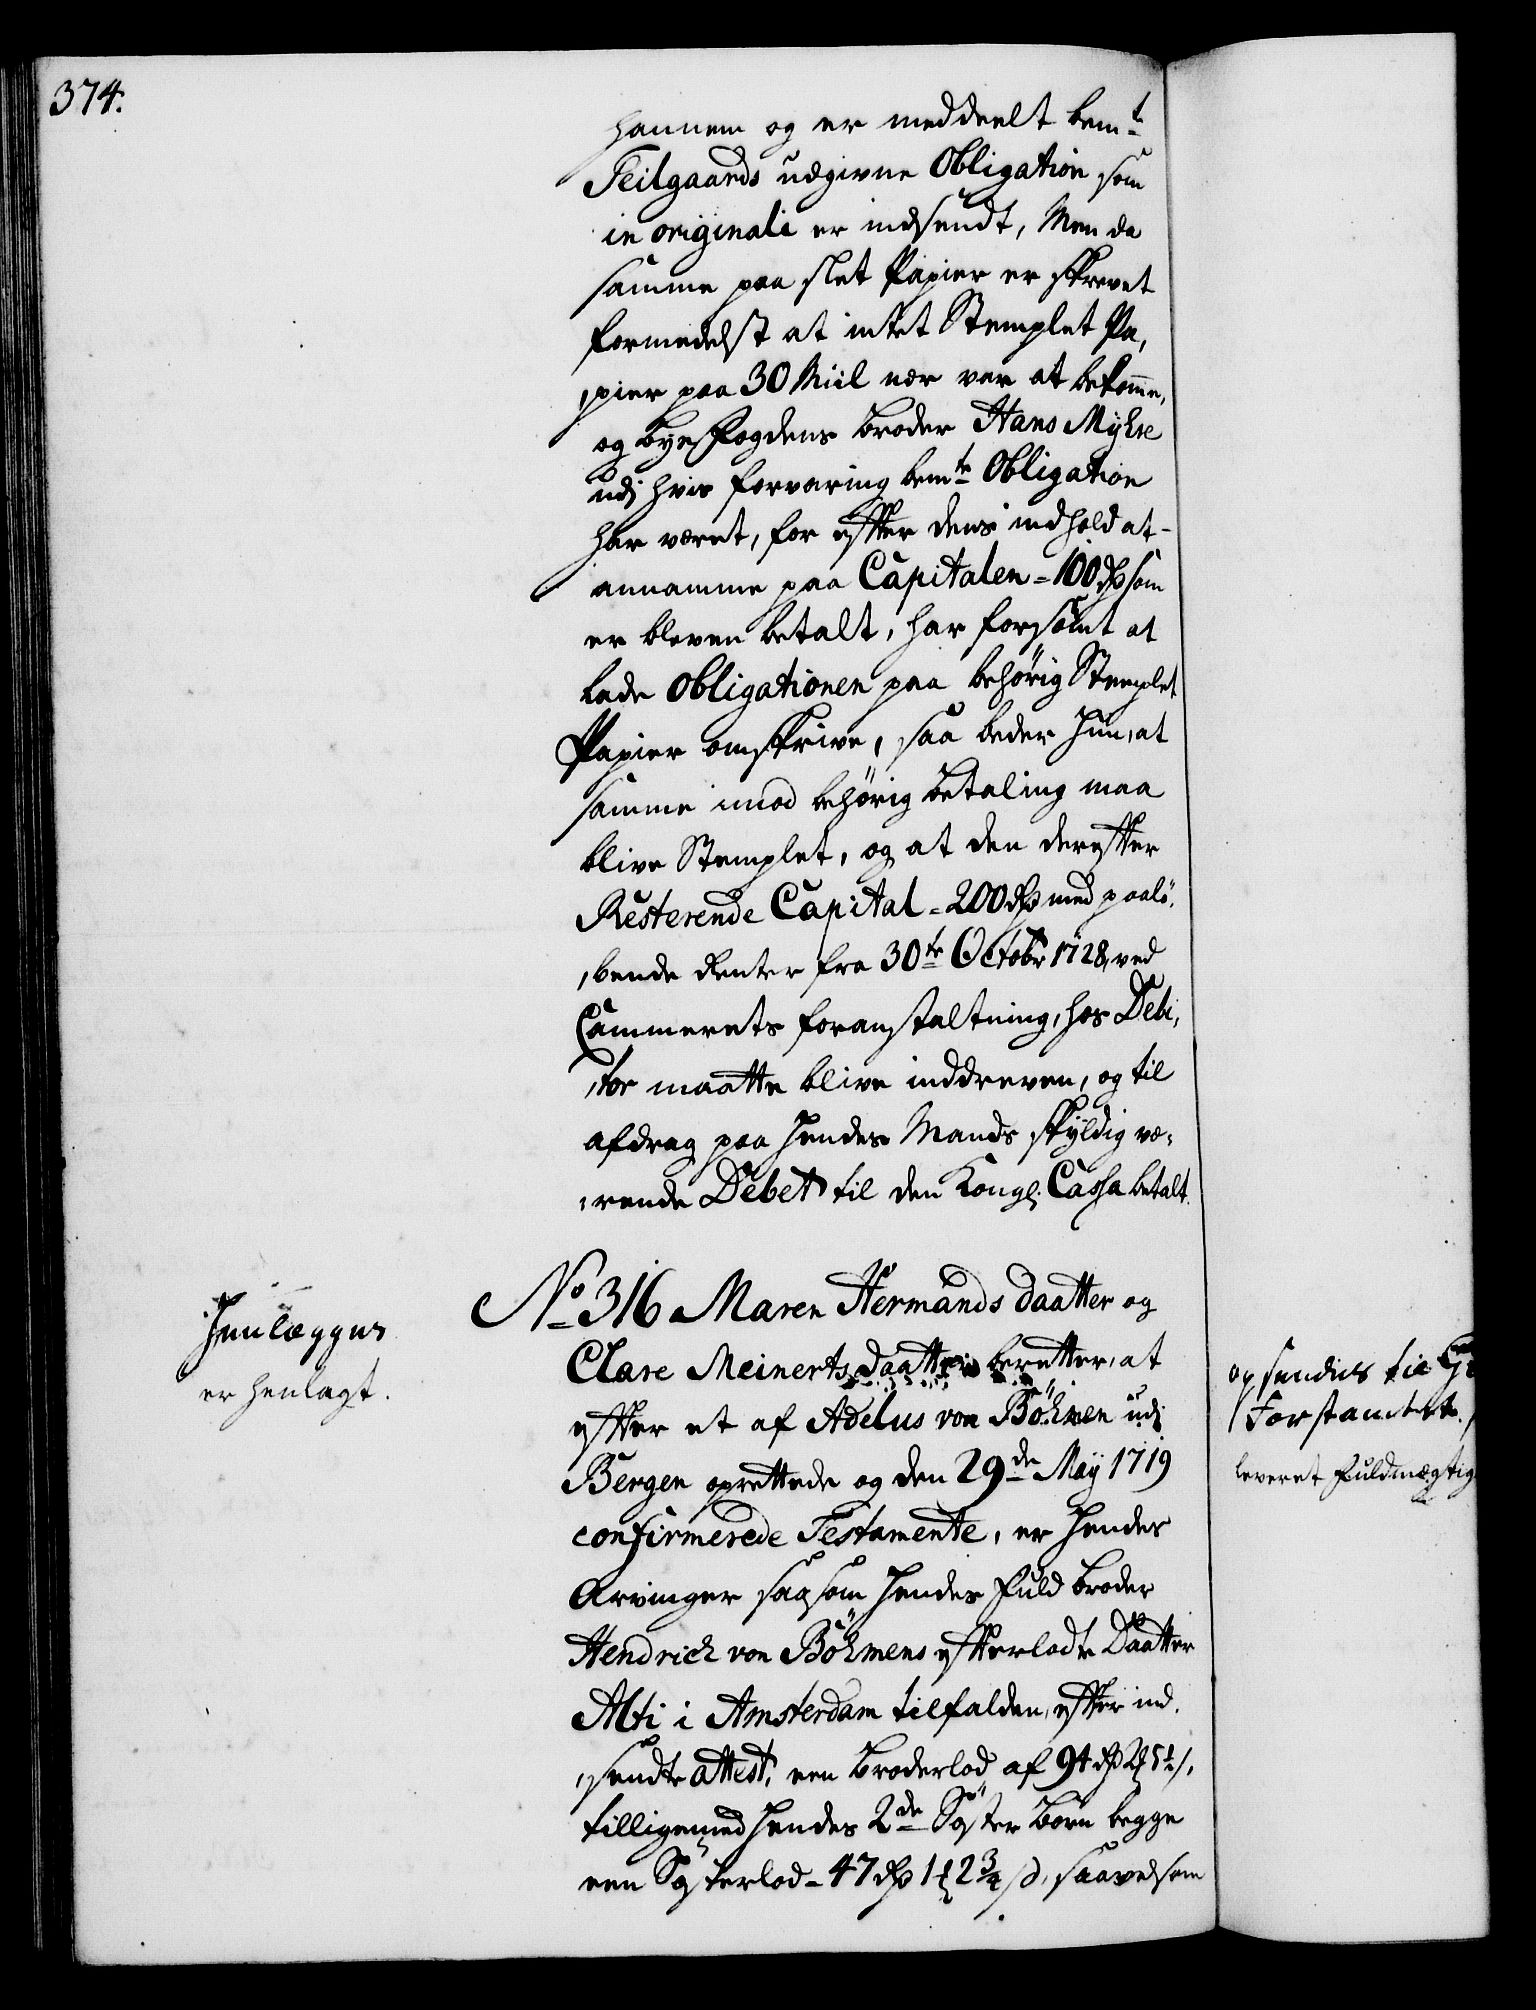 374.
hannem og er meddeelt bemt
Feilgaards udgivne Obligation som
in originali er indsendt, Men da
samme paa slet Papier er skrevet
formedelst at intet Stemplet Pa,
,pier paa 30 Miil nær var at bekomme,
og Byefogdens broder Hans Myhre
udj hvis forvaring bemte Obligation
har været, for efter dens indhold at
annamme paa Capitalen = 100 rdr som
er bleven betalt, har forsömt at
lade Obligationen paa behörig Stemplet
Papier omskrive, saa beder Hun, at
samme imod behörig betaling maa
blive Stemplet, og at den derefter
Resterende Capital = 200 rdr med paalö,
,bende Renter fra 30te Octobr 1728, ved
Cammerets foranstaltning, hos Debi,
,tor maatte blive inddreven, og til
afdrag paa Hendes Mands skyldig væ,
,rende Debet til den Kongl. Cassa betalt.
Henlægges
er henlagt.
No 316 Maren Hermands daatter og
Clare Meinerts daatter beretter, at
efter et af Adelus von Böhmen udj
Bergen oprettede og den 29de Maÿ 1719
confirmerede Testamente, er Hendes
Arvinger saasom Hendes fuld broder
Hendrich von Böhmens efterladte Daatter
Alti i Amsterdam tilfalden, efter ind,
,sendte attest, een Broderlod af 94 rdr 2 5½ s,
tilligemed Hendes 2de Söster Börn begge
een Sösterlod = 47 rdr 1 2¾ s, saavelsom
opsendes til
Forstambtet.
leveret Fuldmægtig